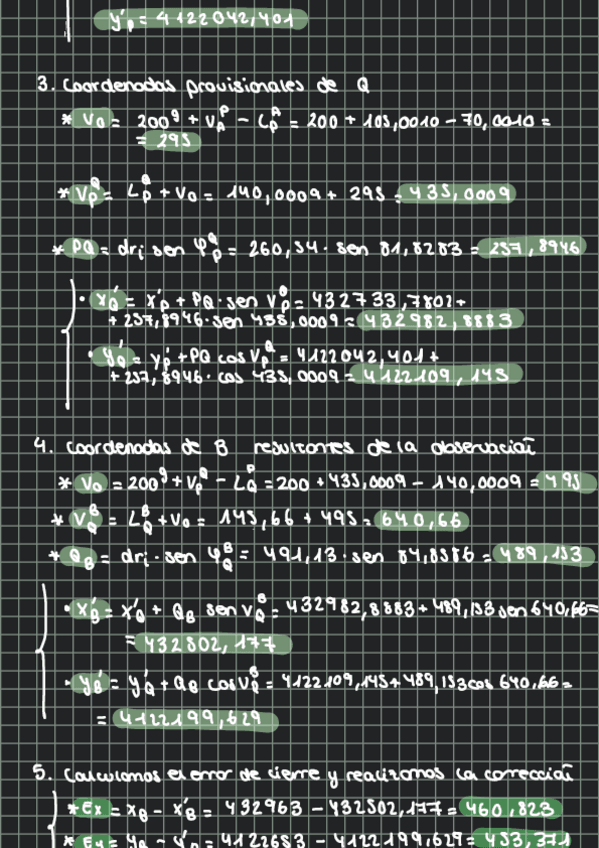 y'p = 4122042,401
3. Coordenadas provisionales de Q
* Vo = 200ᵍ + V_A^P − L_P^A = 200 + 105,0010 − 70,0010 =
= 295
* V_P^Q = L_P^Q + Vo = 140,0009 + 295 = 435,0009
* PQ = dri sen φ_P^Q = 260,54 · sen 81,8283 = 257,8946
· x'_Q = x'_P + PQ · sen V_P^Q = 432733,7802 +
+ 257,8946 · sen 435,0009 = 432982,8883
· y'_Q = y'_P + PQ cos V_P^Q = 4122042,401 +
+ 257,8946 · cos 435,0009 = 4122109,145
4. Coordenadas de B resultantes de la observación
* Vo = 200ᵍ + V_P^Q − L_Q^P = 200 + 435,0009 − 140,0009 = 495
* V_Q^B = L_Q^B + Vo = 145,66 + 495 = 640,66
* QB = dri · sen φ_Q^B = 491,13 · sen 84,8586 = 489,153
· x'_B = x'_Q + QB sen V_Q^B = 432982,8883 + 489,153 sen 640,66 =
= 432502,177
· y'_B = y'_Q + QB cos V_Q^B = 4122109,145 + 489,153 cos 640,66 =
= 4122199,629
5. Calculamos el error de cierre y realizamos la corrección
* Ex = x_B − x'_B = 432963 − 432502,177 = 460,823
* Ey = y_B − y'_B = 4122653 − 4122199,629 = 453,371